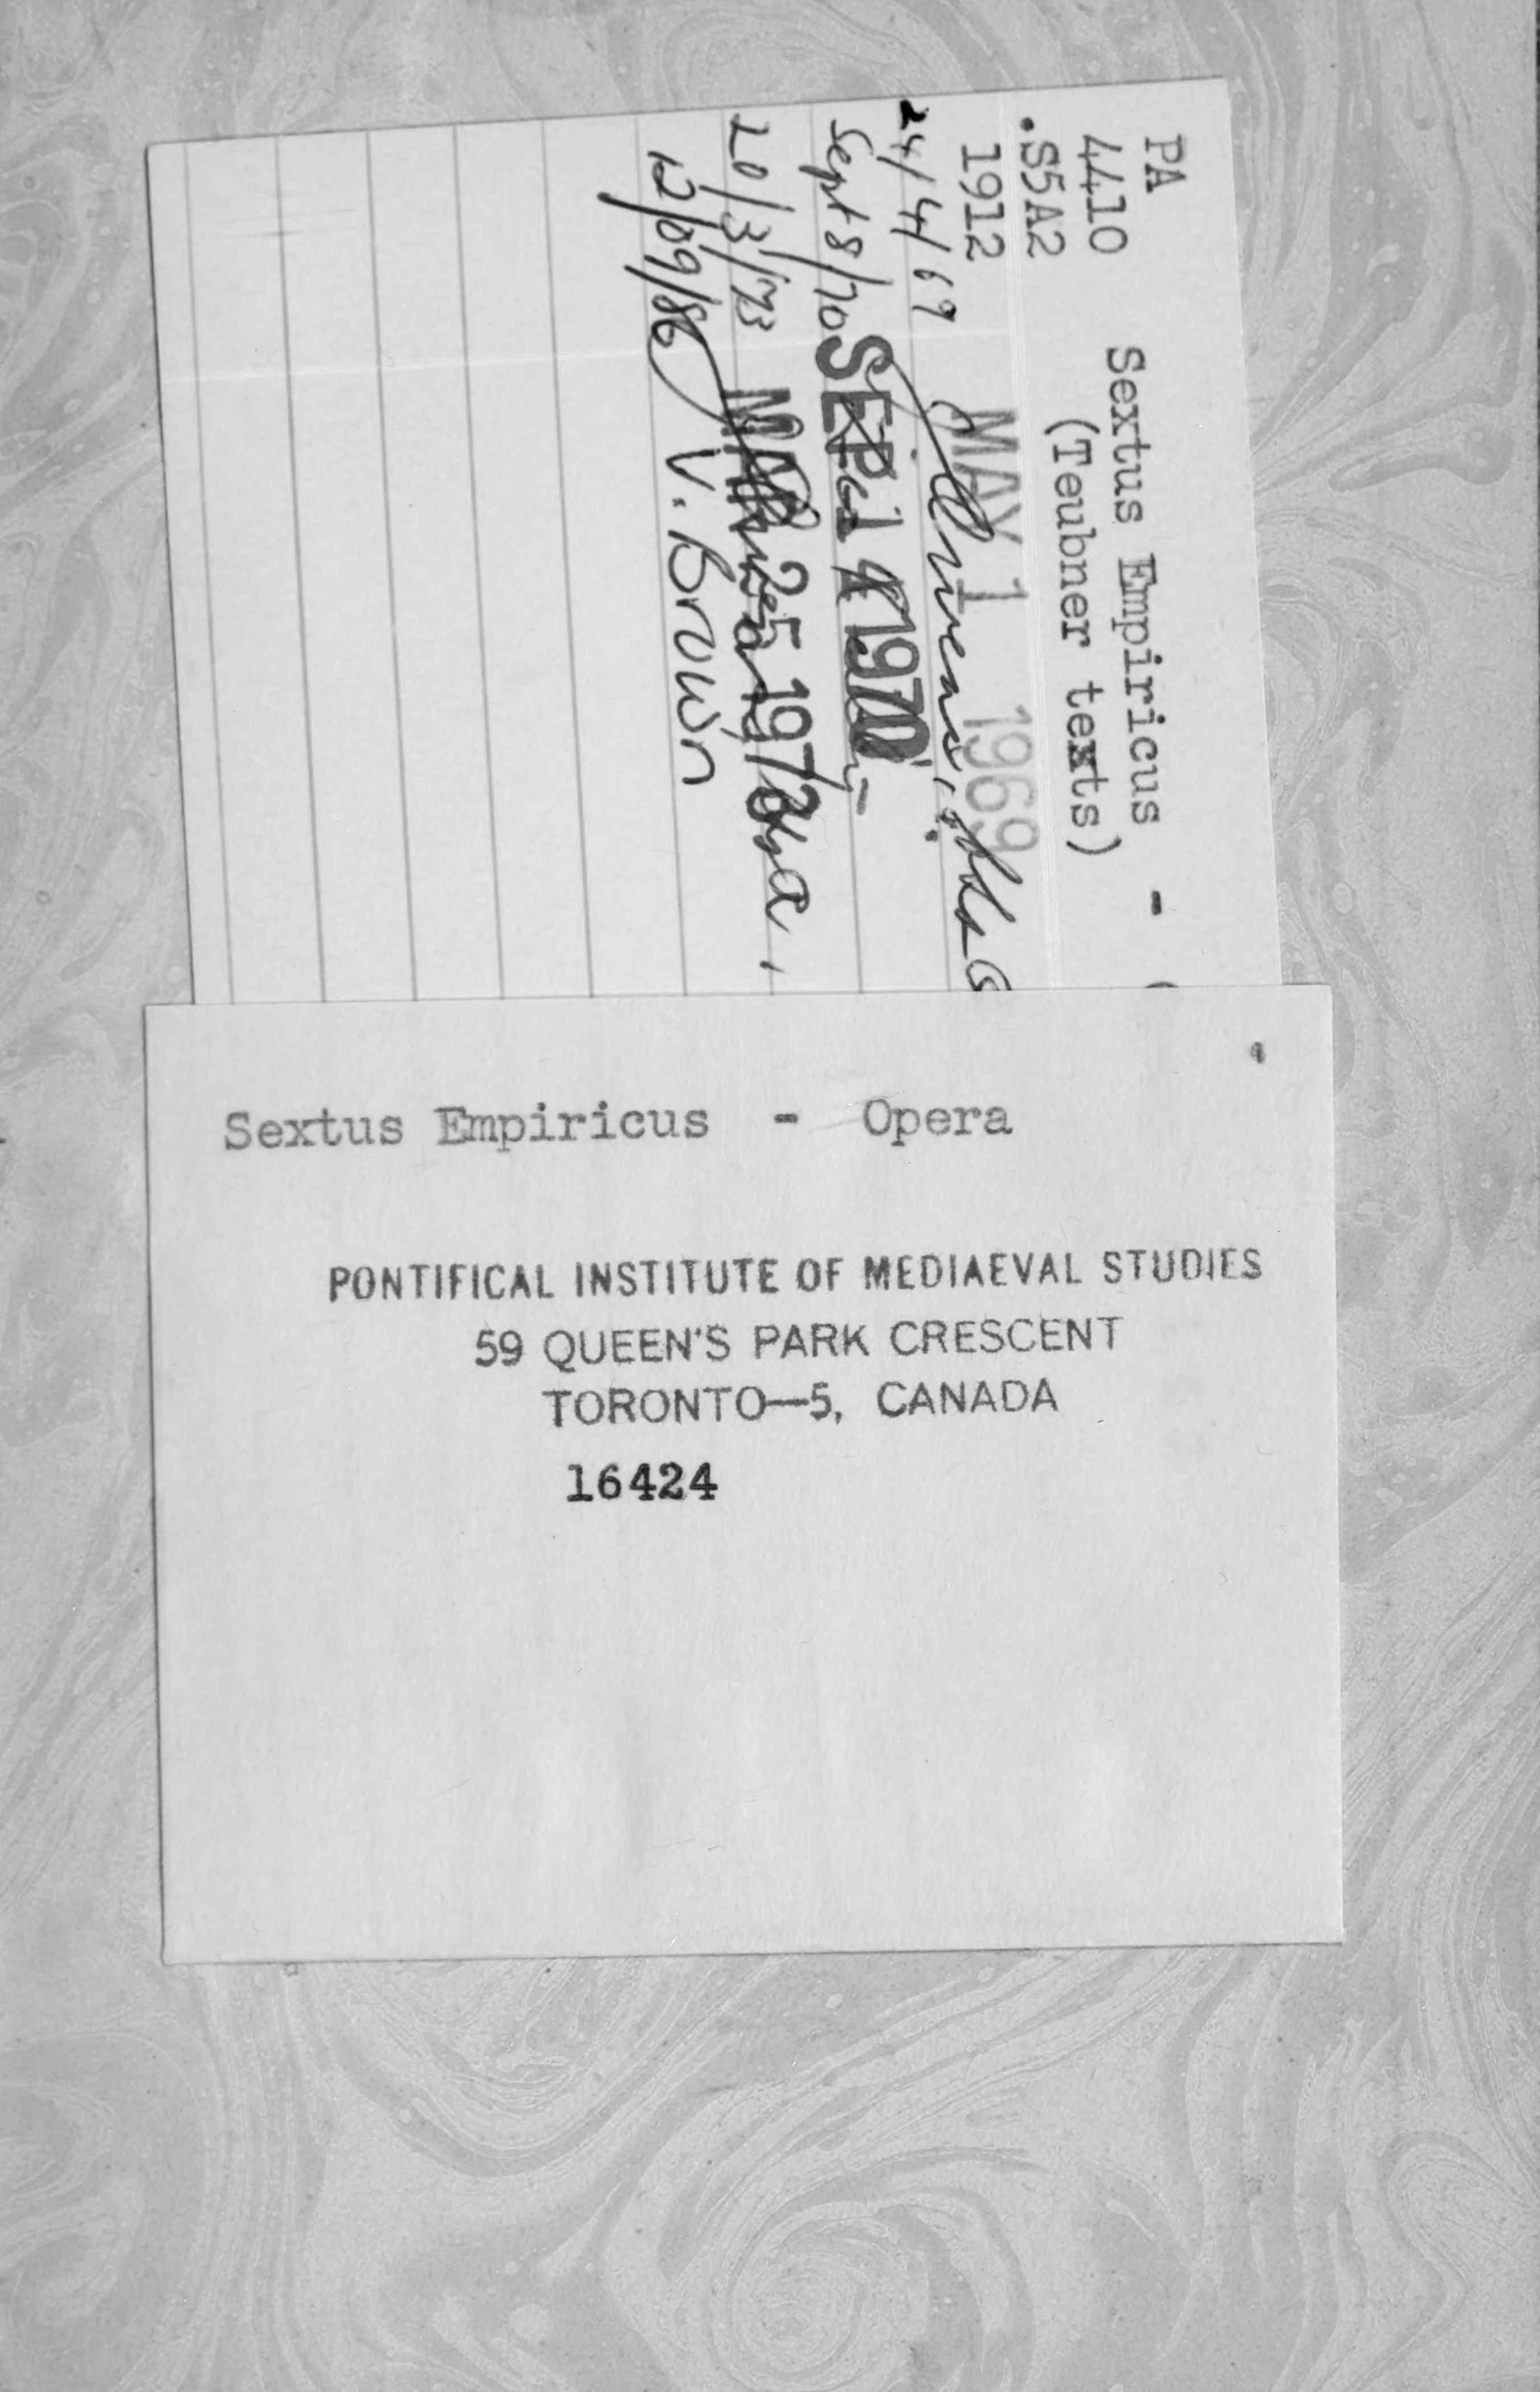 PA
4410
.S5A2
1912
Sextus Empiricus -
(Teubner texts)
24/4/69
MAY 1 1969
Sept 8/70
SEP 14 1970
20/3/73
MAR 25 1973
12/09/86 V. Brown
Sextus Empiricus - Opera
PONTIFICAL INSTITUTE OF MEDIAEVAL STUDIES
59 QUEEN'S PARK CRESCENT
TORONTO—5, CANADA
16424